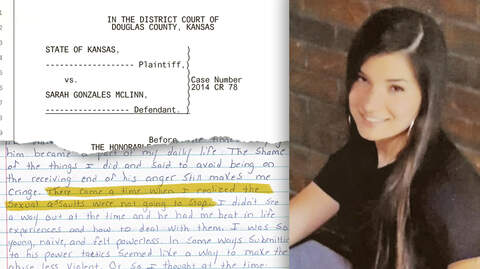 IN THE DISTRICT COURT OF
DOUGLAS COUNTY, KANSAS
STATE OF KANSAS,
Plaintiff,
vs.
Case Number
2014 CR 78
SARAH GONZALES MCLINN,
Defendant.
Before
THE HONORABLE
him became a part of my daily life. The shame
of the things I did and said to avoid being on
the receiving end of his anger still makes me
cringe. There came a time when I realized the
sexual assaults were not going to stop. I didn't see
a way out at the time and he had me beat in life
experiences and how to deal with them. I was so
young, naive, and felt powerless. In some ways submitting
to his power tactics seemed like a way to make the
abuse less violent. Or so I thought at the time.